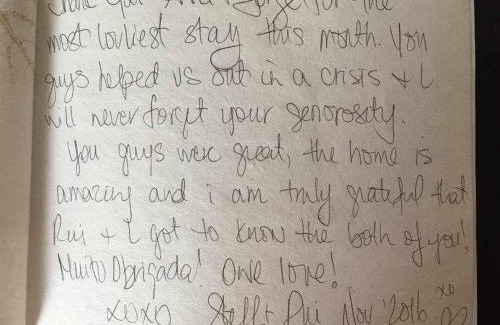 Thank you for the
most lovliest stay this month. You
guys helped us out in a crisis + I
will never forget your generosity.
You guys were great, the home is
amazing and i am truly grateful that
Rui + I got to know the both of you!
Muito Obrigada! One love!
xoxo Steff + Rui Nov '2016. xo